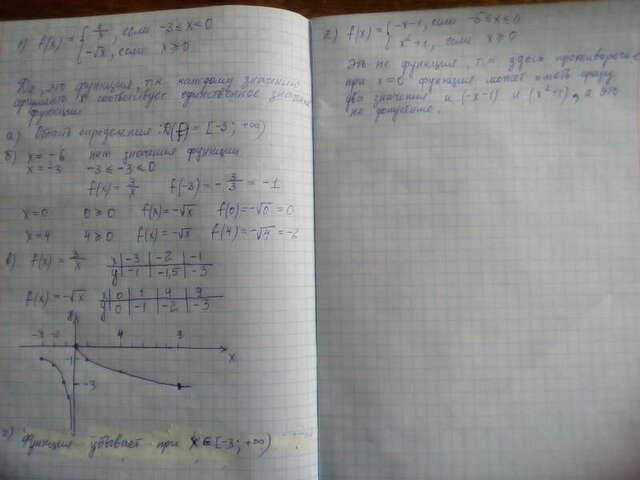 1) f(x) = { 3/x, если -3 ≤ x < 0
-√x, если x ≥ 0
Да, это функция, т.к. каждому значению
аргумента x соответствует единственное значение
функции
а) Область определения: D(f) = [-3; +∞)
б) x = -6 нет значения функции
x = -3 -3 ≤ -3 ≤ 0
f(x) = 3/x f(-3) = -3/3 = -1
x = 0 0 ≥ 0 f(x) = -√x f(0) = -√0 = 0
x = 4 4 ≥ 0 f(x) = -√x f(4) = -√4 = -2
в) f(x) = 3/x x | -3 | -2 | -1
y | -1 | -1,5 | -3
f(x) = -√x x | 0 | 1 | 4 | 9
y | 0 | -1 | -2 | -3
4 9
x
-1
-3
г) Функция убывает при x ∈ [-3; +∞)
2) f(x) = { -x-1, если -5 ≤ x ≤ 0
x²+1, если x ≥ 0
Это не функция, т.к. здесь противоречие
при x = 0 функция может иметь сразу
два значения и (-x-1) и (x²+1), а это
не допустимо.